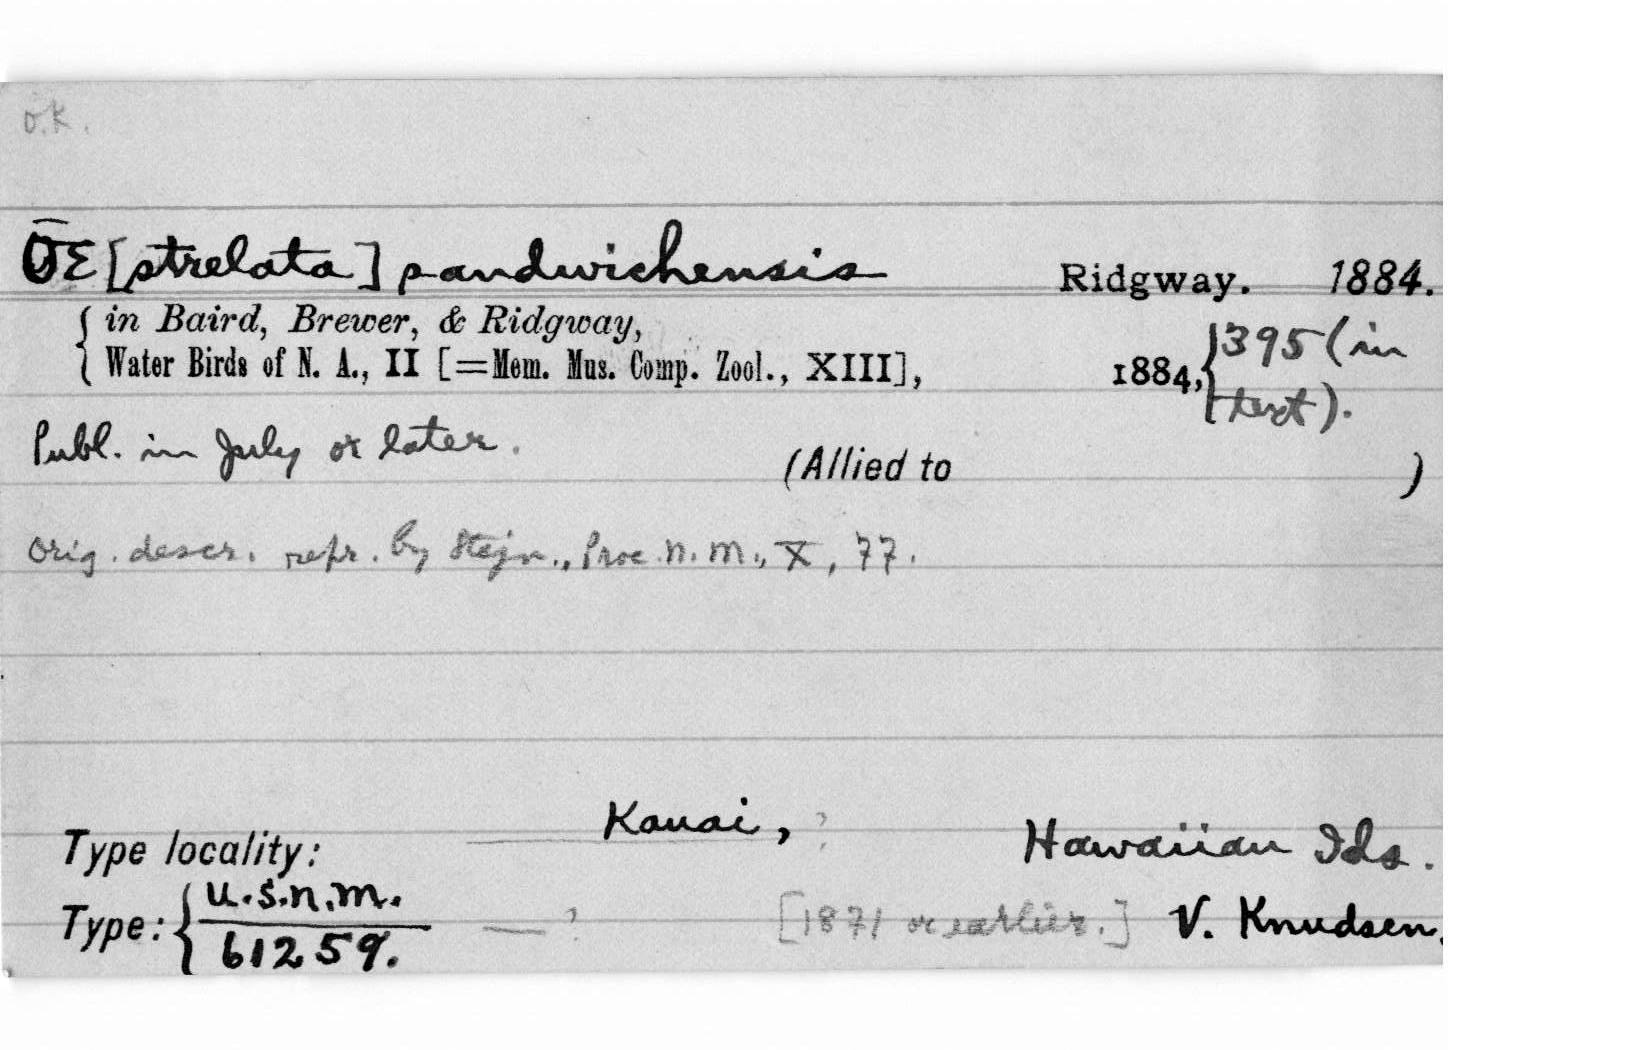 o.k.
Œ[strelata] sandwichensis Ridgway. 1884.
{ in Baird, Brewer, & Ridgway,
Water Birds of N. A., II [=Mem. Mus. Comp. Zool., XIII], 1884, { 395 (in
text).
Publ. in July or later.
(Allied to )
Orig. descr. repr. by Stejn., Proc. N. M., X, 77.
Kauai, ?
Type locality: Hawaiian Ids.
Type: { U.S.N.M. — ? [1871 or earlier.] V. Knudsen.
61259.